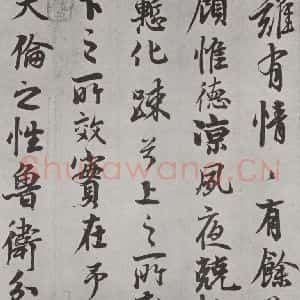 雍有情、有餘
顧惟德凉夙夜兢
慙化踈兮上之所
下之所效實在予
天倫之性魯衛分
Shufawang.CN